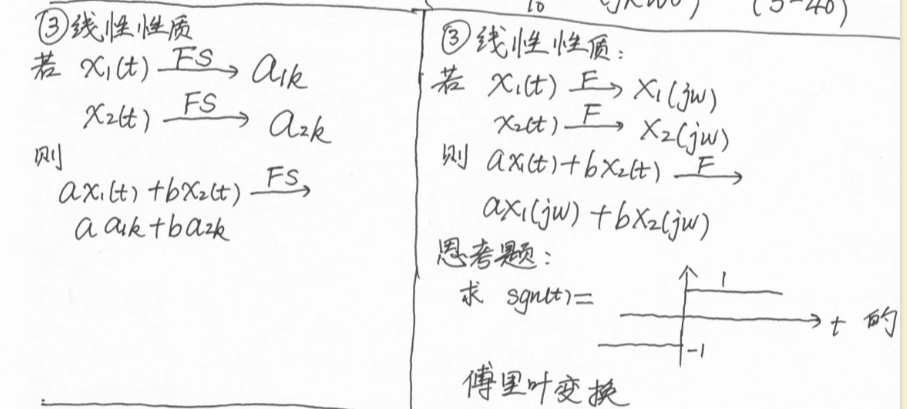 10 (jkω0) (5-40)
③线性性质
若 x₁(t) FS→ a₁k
x₂(t) FS→ a₂k
则
ax₁(t)+bx₂(t) FS→
a a₁k+ba₂k
③线性性质:
若 x₁(t) F→ X₁(jw)
x₂(t) F→ X₂(jw)
则 ax₁(t)+bx₂(t) F→
ax₁(jw)+bX₂(jw)
思考题:
1
求 sgn(t)= t 的
-1
傅里叶变换